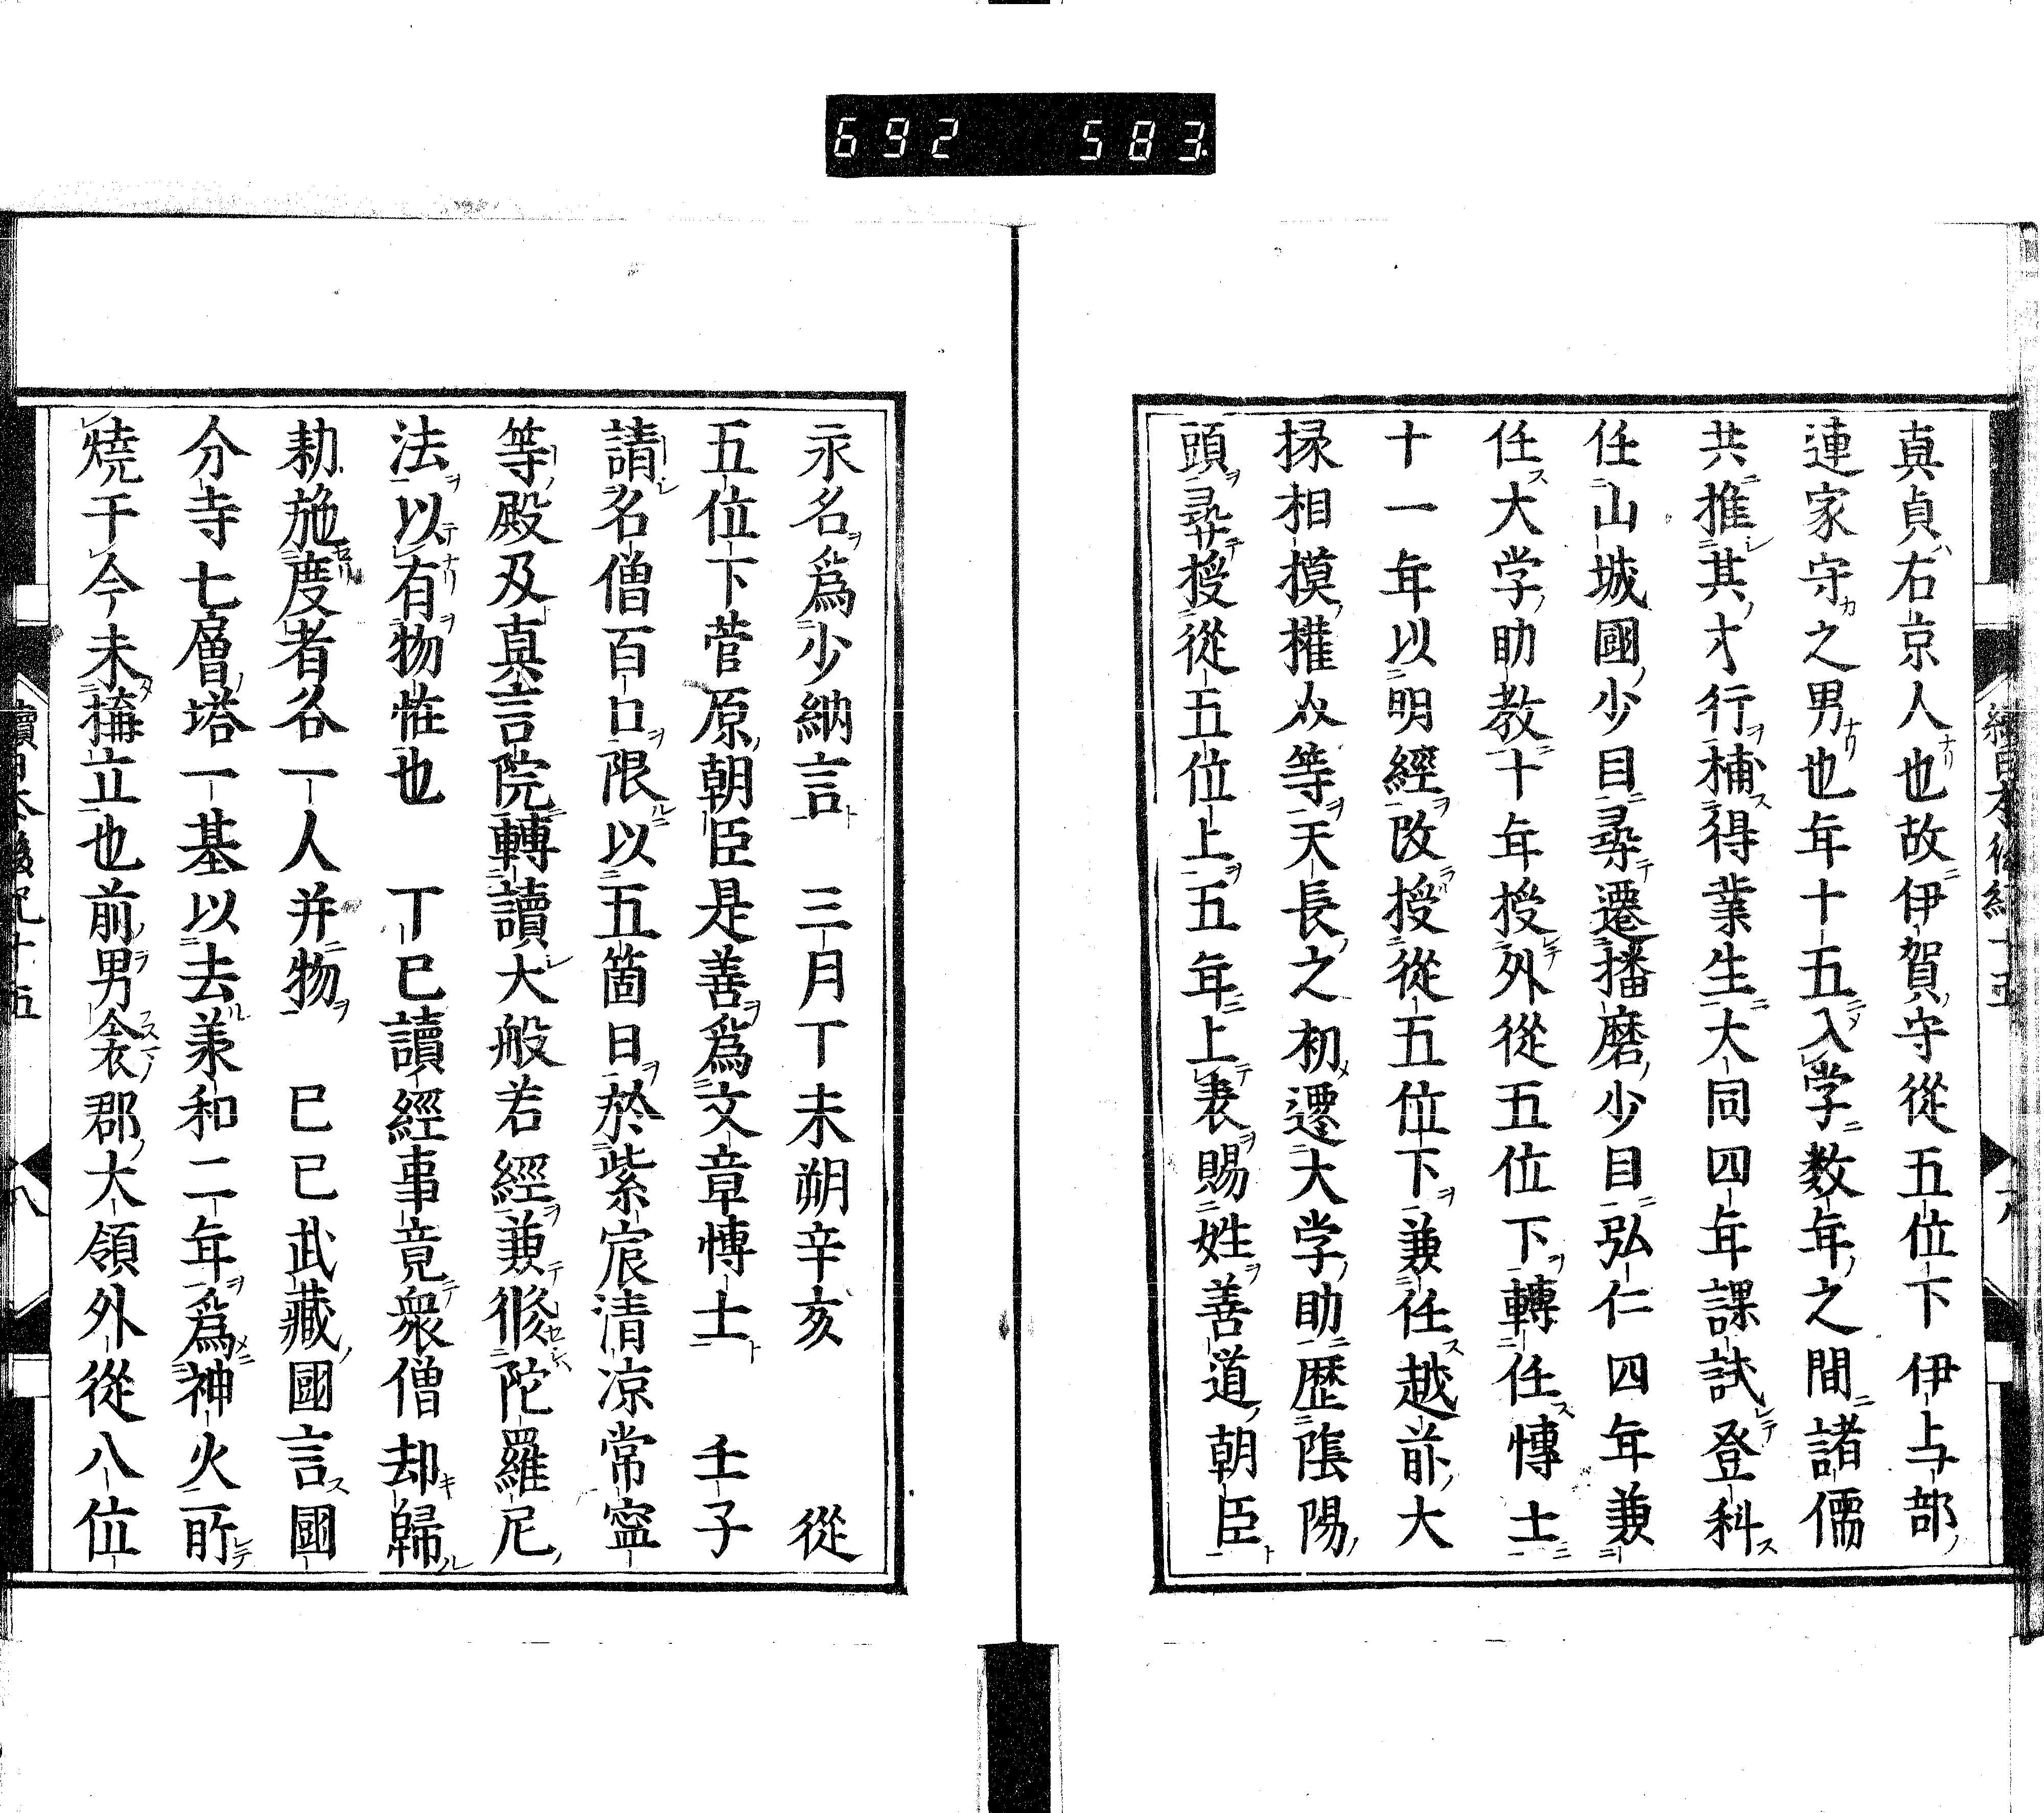 692 583
真貞右京人也故伊賀守從五位下伊与部
連家守之男也年十五入学数年之間諸儒
共推其才行補得業生大同四年課試登科
任山城國少目尋遷播磨少目弘仁四年兼
任大学助教十年授外從五位下轉任博士
十一年以明經改授從五位下兼任越前大
掾相摸權介等天長之初遷大学助歴陰陽
頭尋授從五位上五年上表賜姓善道朝臣
永名爲少納言 三月丁未朔辛亥 從
五位下菅原朝臣是善爲文章博士 壬子
請名僧百口限以五箇日於紫宸清凉常寧
等殿及真言院轉讀大般若經兼修陀羅尼
法以有物恠也 丁巳讀經事竟衆僧却歸
勅施度者各一人并物 己巳武藏國言國
分寺七層塔一基以去承和二年爲神火所
燒于今未搆立也前男衾郡大領外從八位